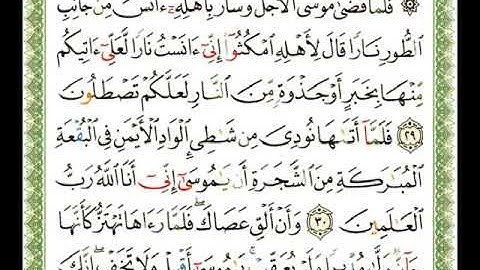 ۞ فَلَمَّا قَضَىٰ مُوسَى ٱلْأَجَلَ وَسَارَ بِأَهْلِهِۦٓ ءَانَسَ مِن جَانِبِ
ٱلطُّورِ نَارًا قَالَ لِأَهْلِهِ ٱمْكُثُوٓا۟ إِنِّىٓ ءَانَسْتُ نَارًا لَّعَلِّىٓ ءَاتِيكُم
مِّنْهَا بِخَبَرٍ أَوْ جَذْوَةٍ مِّنَ ٱلنَّارِ لَعَلَّكُمْ تَصْطَلُونَ
٢٩ فَلَمَّآ أَتَىٰهَا نُودِىَ مِن شَٰطِئِ ٱلْوَادِ ٱلْأَيْمَنِ فِى ٱلْبُقْعَةِ
ٱلْمُبَٰرَكَةِ مِنَ ٱلشَّجَرَةِ أَن يَٰمُوسَىٰٓ إِنِّىٓ أَنَا ٱللَّهُ رَبُّ
ٱلْعَٰلَمِينَ ٣٠ وَأَنْ أَلْقِ عَصَاكَ ۖ فَلَمَّا رَءَاهَا تَهْتَزُّ كَأَنَّهَا
جَآنٌّ وَلَّىٰ مُدْبِرًا وَلَمْ يُعَقِّبْ ۚ يَٰمُوسَىٰٓ أَقْبِلْ وَلَا تَخَفْ ۖ إِنَّكَ